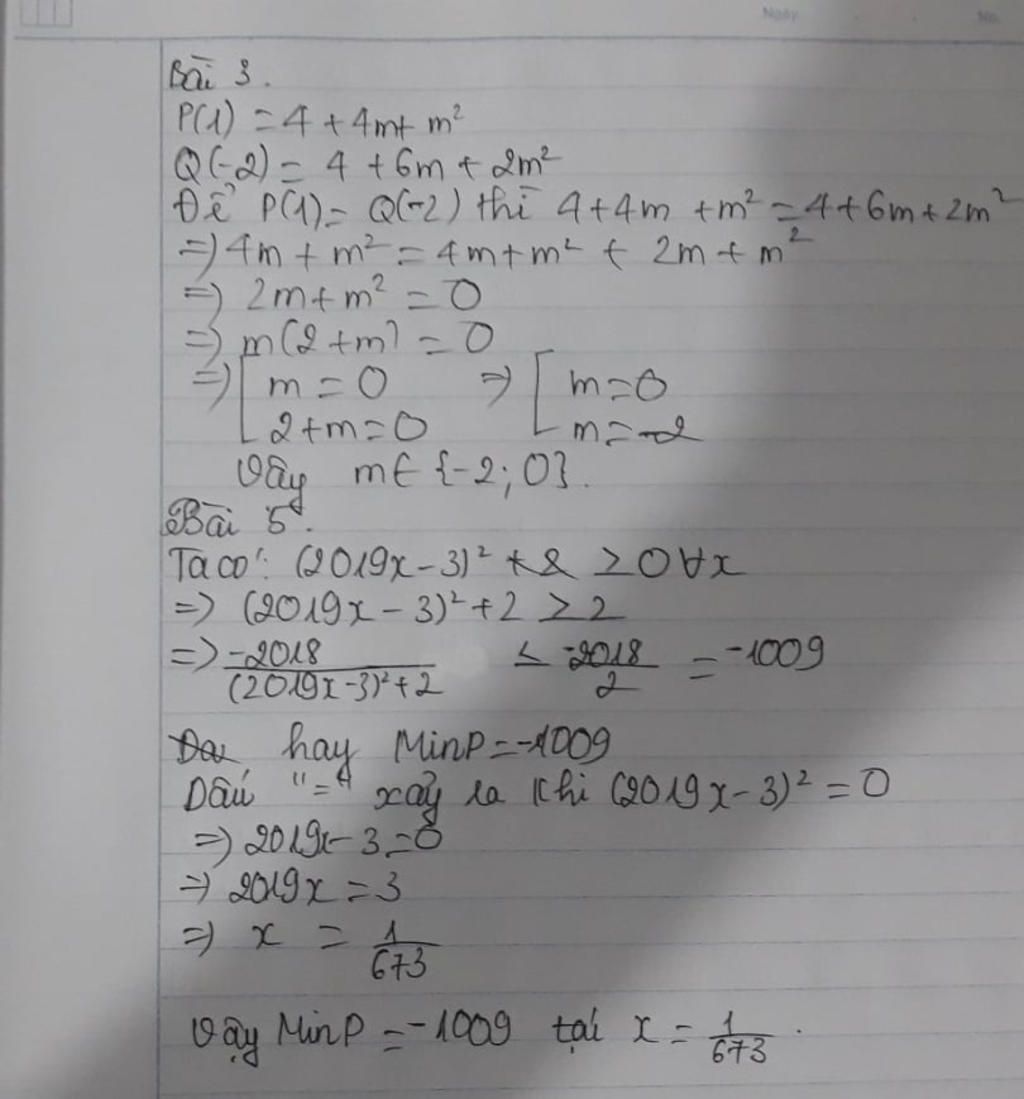 Ngày
No.
Bài 3.
P(1) = 4 + 4m + m²
Q(-2) = 4 + 6m + 2m²
Để P(1) = Q(-2) thì 4 + 4m + m² = 4 + 6m + 2m²
=> 4m + m² = 4m + m² + 2m + m²
=> 2m + m² = 0
=> m(2 + m) = 0
=> [ m = 0 => [ m = 0
2 + m = 0 m = -2
Vậy m ∈ {-2; 0}.
Bài 5.
Ta có: (2019x - 3)² ≥ 0 ∀x
=> (2019x - 3)² + 2 ≥ 2
=> -2018/((2019x - 3)² + 2) ≤ -2018/2 = -1009
hay MinP = -1009
Dấu "=" xảy ra khi (2019x - 3)² = 0
=> 2019x - 3 = 0
=> 2019x = 3
=> x = 1/673
Vậy MinP = -1009 tại x = 1/673.